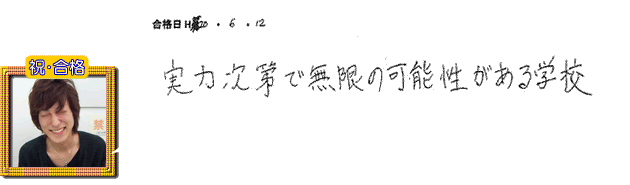 合格日H20・6・12
祝・合格
実力次第で無限の可能性がある学校
禁